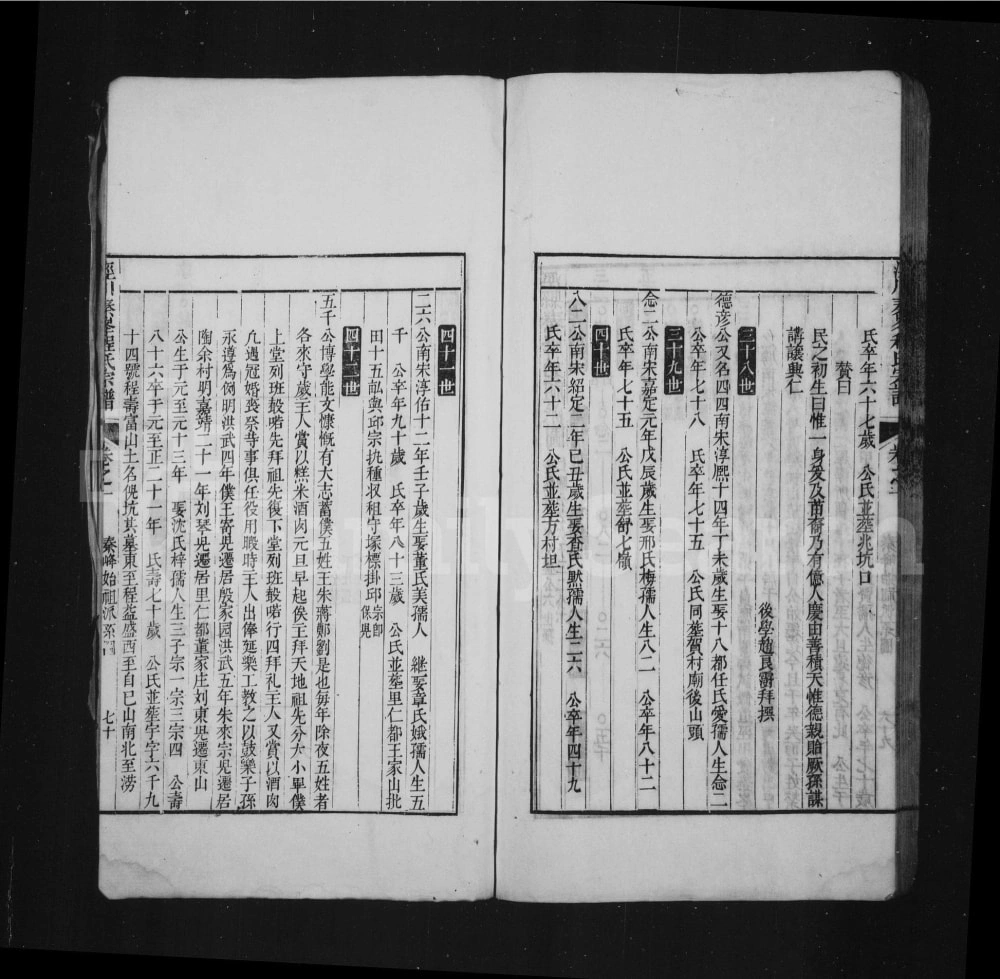 氏卒年六十七歲　公氏並塟兆坑口
贊曰
民之初生曰惟一身爰及苗裔乃有億人慶由善積天惟德親貽厥孫謀
講讓興仁
後學趙良霨拜撰
三十八世
德彥公又名四四南宋淳熙十四年丁未歲生娶十八都任氏愛孺人生念二
公卒年七十八　氏卒年七十五　公氏同塟賀村廟後山頭
三十九世
念二公南宋嘉定元年戊辰歲生娶邢氏梅孺人生八二　公卒年八十二
氏卒年七十五　公氏並塟舒七嶺
四十世
八二公南宋紹定二年己丑歲生娶查氏熙孺人生二六　公卒年四十九
氏卒年六十二　公氏並塟方村坦
四十一世
二六公南宋淳佑十二年壬子歲生娶董氏美孺人　繼娶章氏娥孺人生五
千　公卒年九十歲　氏卒年八十三歲　公氏並塟里仁都王家山批
田十五畝與邱宗執種収租守塚標掛邱宗卽保晃
四十二世
五千公博學能文慷慨有大志蓄僕五姓王朱蔣鄭劉是也每年除夜五姓者
各來守歲主人賞以糕米酒肉元旦早起俟主拜天地祖先分大小畢僕
上堂列班毅喏先拜祖先後下堂列班毅喏行四拜礼主人又賞以酒肉
凢遇冠婚喪祭等事俱任役用暇時主人出俸延樂工教之以鼓樂子孫
永遵爲例明洪武四年僕王寄晃遷居殷家园洪武五年朱來宗晃遷居
陶余村明嘉靖二十一年刘琴晃遷居里仁都董家庄刘東晃遷東山
公生于元至元十三年　娶沈氏梓孺人生三子宗一宗三宗四　公壽
八十六卒于元至正二十一年　氏壽七十歲　公氏並塟宇字六千九
十四號程壽富山土名倪坑其墓東至程益盛西至自己山南北至澇
涇川秦峯程氏宗譜　卷之一　秦峰始祖派系圖　七十